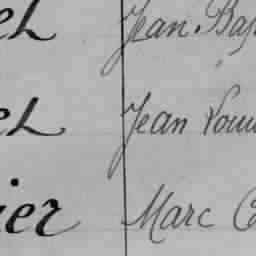 el Jean Bap
el Jean Loui
ier Marc C